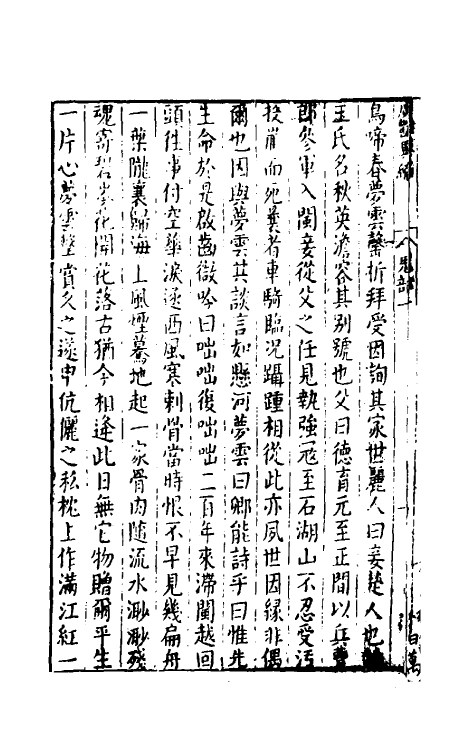 鳥啼春夢雲罄折拜受因詢其家世麗人曰妾楚人也
王氏名秋英澹容其別號也父曰徳育元至正間以兵曹
郎參軍入閩妾從父之任見執強冦至石湖山不忍受汚
投崖而死曩者車騎臨况躡踵相從此亦夙世因縁非偶
爾也因與夢雲共談言如懸河夢雲曰卿能詩乎曰惟先
生命於是啟齒微吟曰咄咄復咄咄二百年來滯閩越回
頭往事付空華淚逐西風寒刺骨當時恨不早見幾扁舟
一葉隴襄歸海上風煙驀地起一家骨肉隨流水渺渺殘
魂寄碧岑花開花落古猶今相逢此日無它物贈爾平生
一片心夢雲擊賞久之遂申伉儷之私枕上作滿江紅一